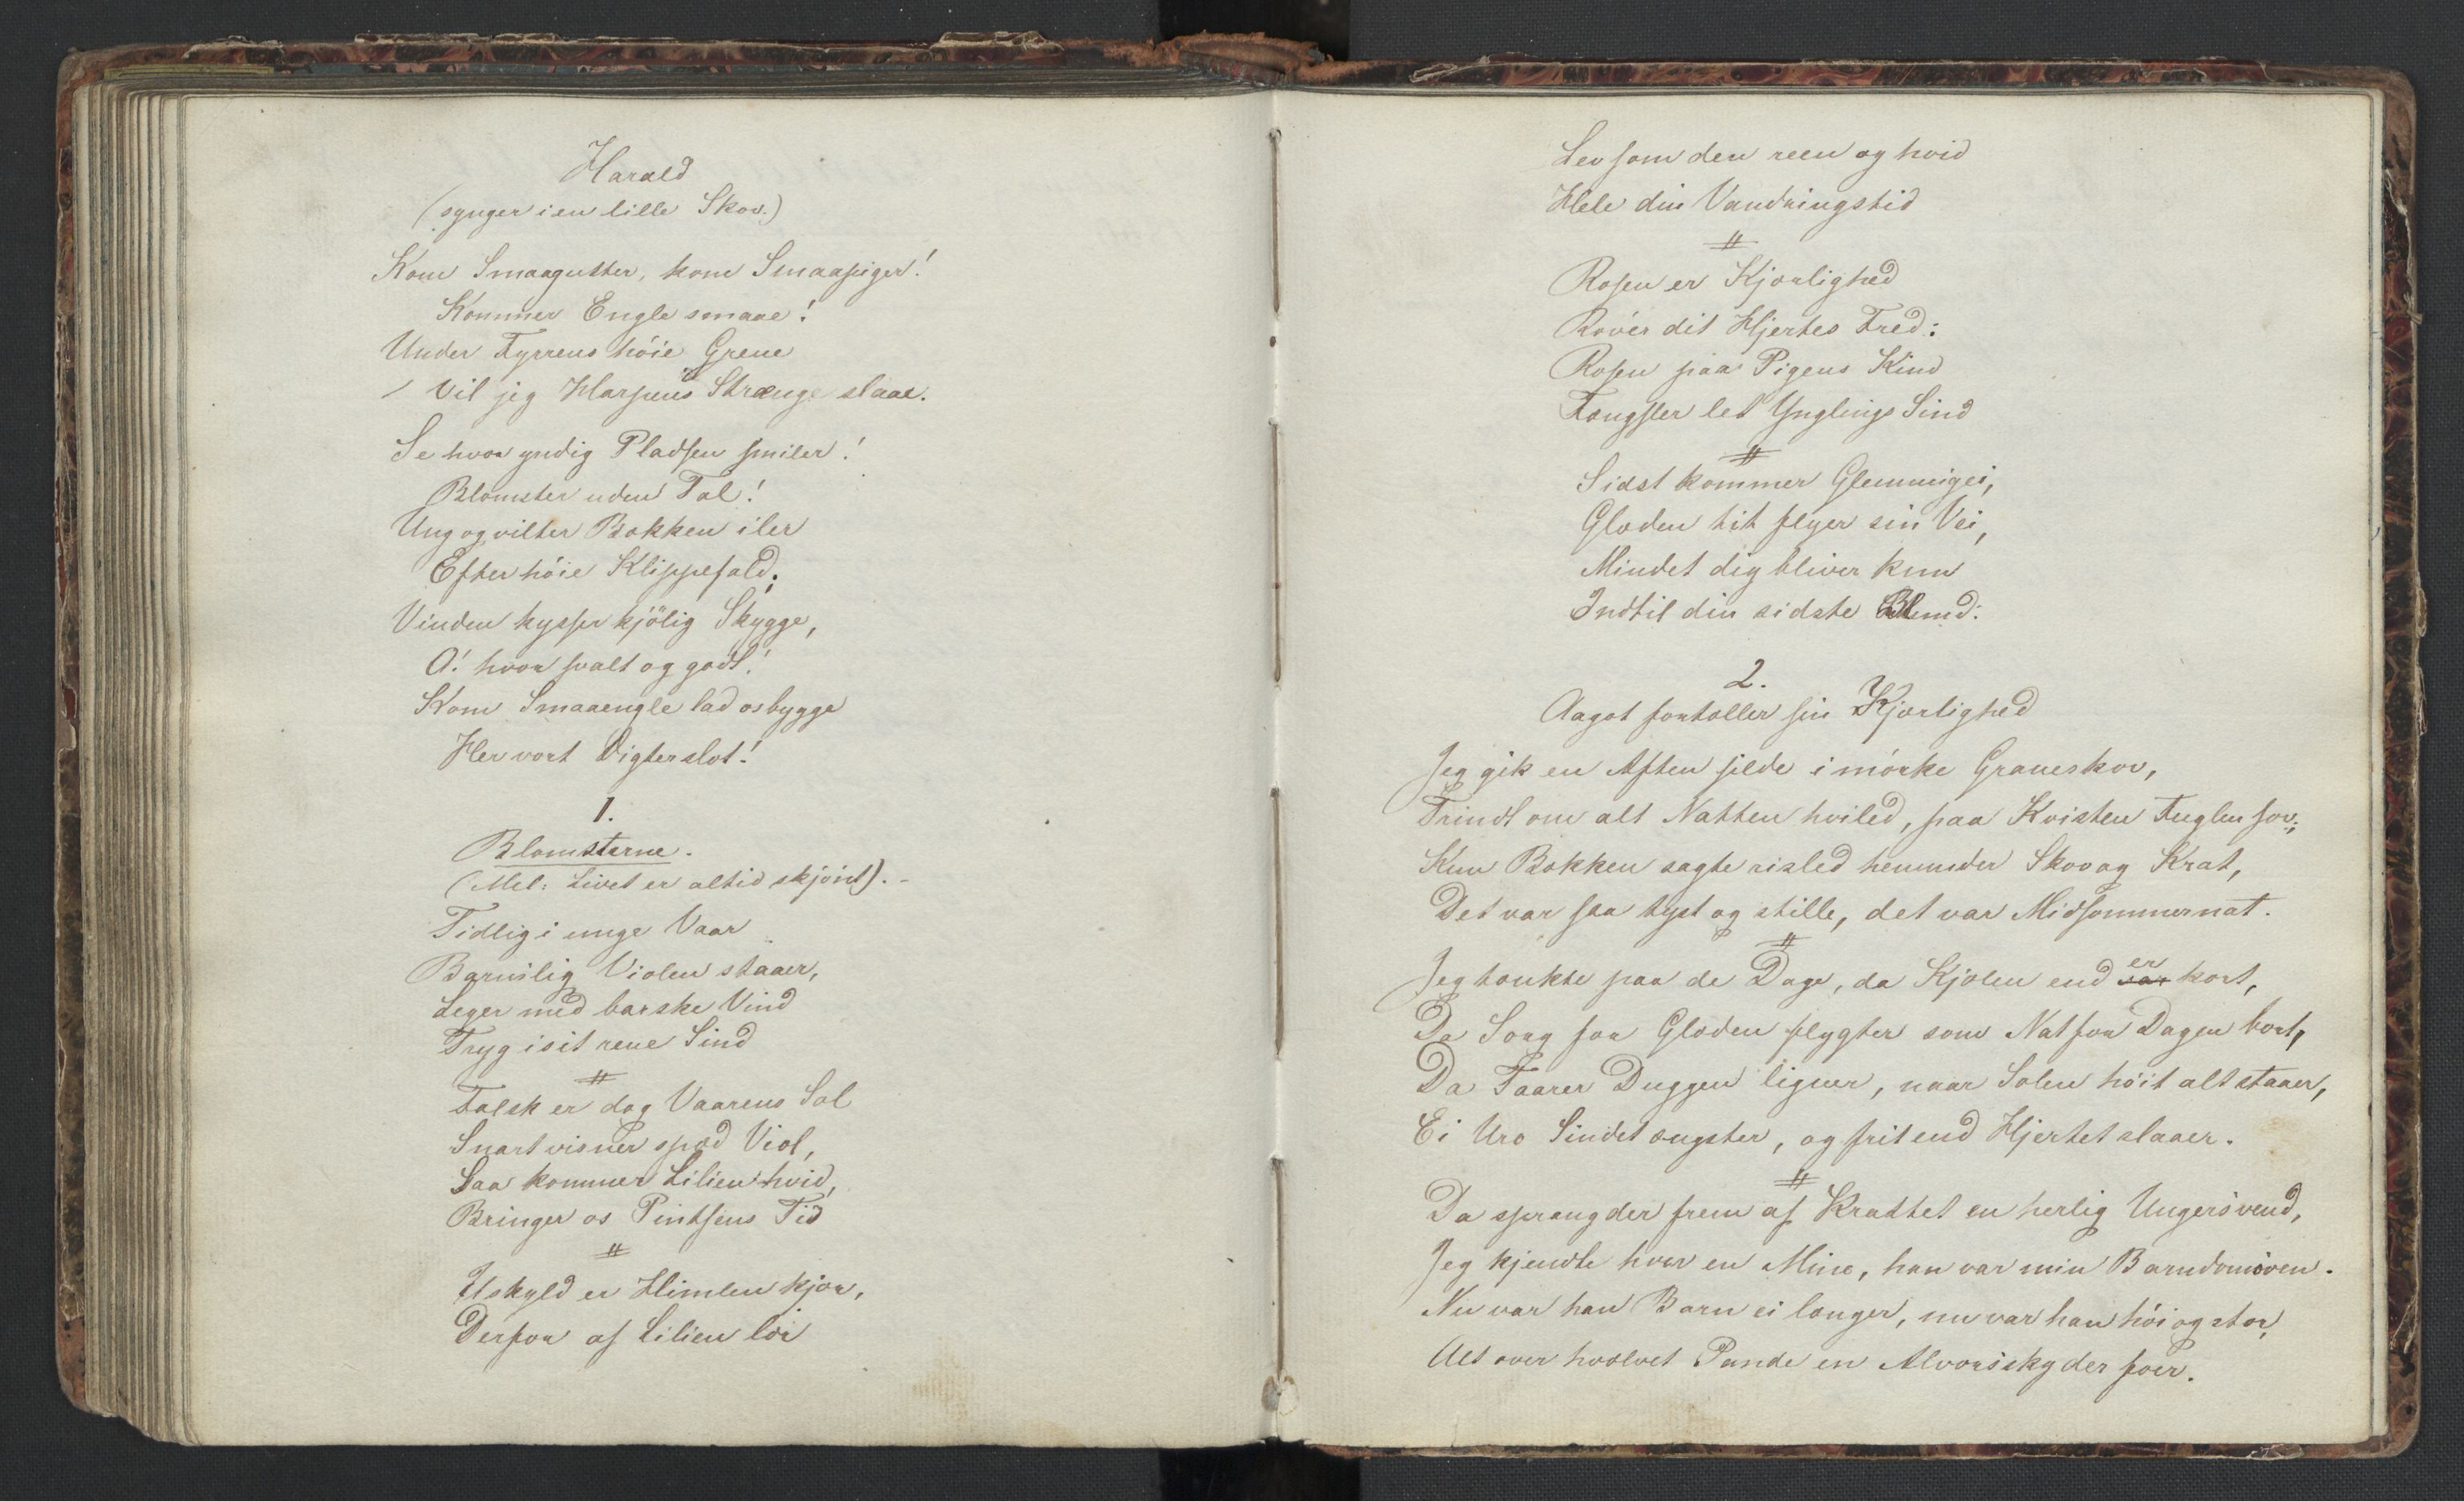 Harald
(synger i en lille Skov.)
Kom Smaagutter, kom Smaapiger!
Kommer Engle smaae!
Under Fyrrens höie Grene
Vil jeg Harpens Strænge slaae.
Se hvor yndig Pladsen smiler!
Blomster uden Tal!
Ung og vilter Bækken iler
Efter höie Klippefald;
Vinden kysser kjölig Skygge,
O! hvor svalt og godt!
Kom Smaaengle lad os bygge
Her vort Digterslot!
1.
Blomsterne.
(Mel: Livet er altid skjönt). -
Tidlig i unge Vaar
Barnslig Violen staaer,
Leger med barske Vind
Tryg i sit rene Sind
#
Falsk er dog Vaarens Sol
Snart visner spæd Viol,
Saa kommer Lilien hvid,
Bringer os Pintsens Tid
#
Uskyld er Himlen kjær,
Derfor af Lilien lær
Lev som den reen og hvid
Hele din Vandringstid
#
Rosen er Kjærlighed
Röver dit Hjertes Fred:
Rosen paa Pigens Kind
Fængsler let Ynglings Sind
#
Sidst kommer Glemmigei,
Glæden tit flyer sin Vei,
Mindet dig bliver kun
Indtil din sidste Blund:
2.
Aagot fortæller sin Kjærlighed
Jeg gik en Aften silde i mörke Graneskov,
Trindt om alt Natten hviled, paa Kvisten Fuglen sov;
Kun Bækken sagte risled henunder Skov og Krat,
Det var saa tyst og stille, det var Midsommernat.
#
Jeg tænkte paa de Dage, da Kjolen end var er kort,
Da Sorg for Glæden flygter som Nat for Dagen bort,
Da Taarer Duggen ligner, naar Solen höit alt staaer,
Ei Uro Sindet ængster, og frit end Hjertet slaaer.
#
Da sprang der frem af Krattet en herlig Ungersvend,
Jeg kjendte hver en Mine, han var min Barndomsven.
Nu var han Barn ei længer, nu var han höi og stor,
Alt over hvælvet Pande en Alvorssky der foer.